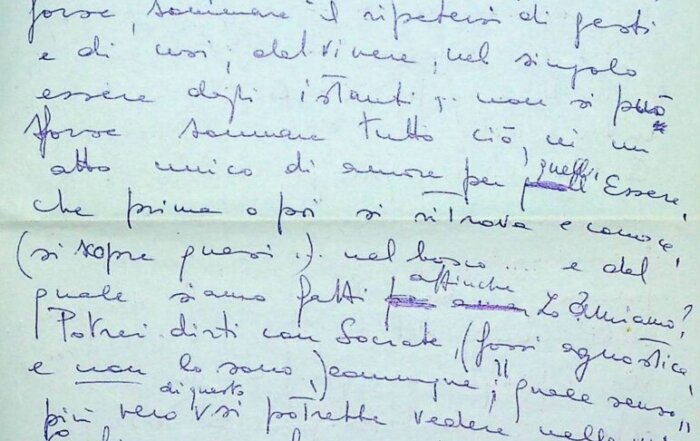 forse, sommare il ripetersi di gesti
e di usi, del vivere, nel singolo
essere degli istanti ;. non si può
forse sommare tutto ciò, in un
atto unico di amore per quell' Essere,
che prima o poi si ritrova e conosce,
(si scopre quasi ..). nel bosco .... e del
quale siamo fatti affinché Lo Amiamo?
Potrei dirti con Socrate, (fossi agnostica,
e non lo sono,) comunque; "quale senso
più vero di questo vi si potrebbe vedere nella